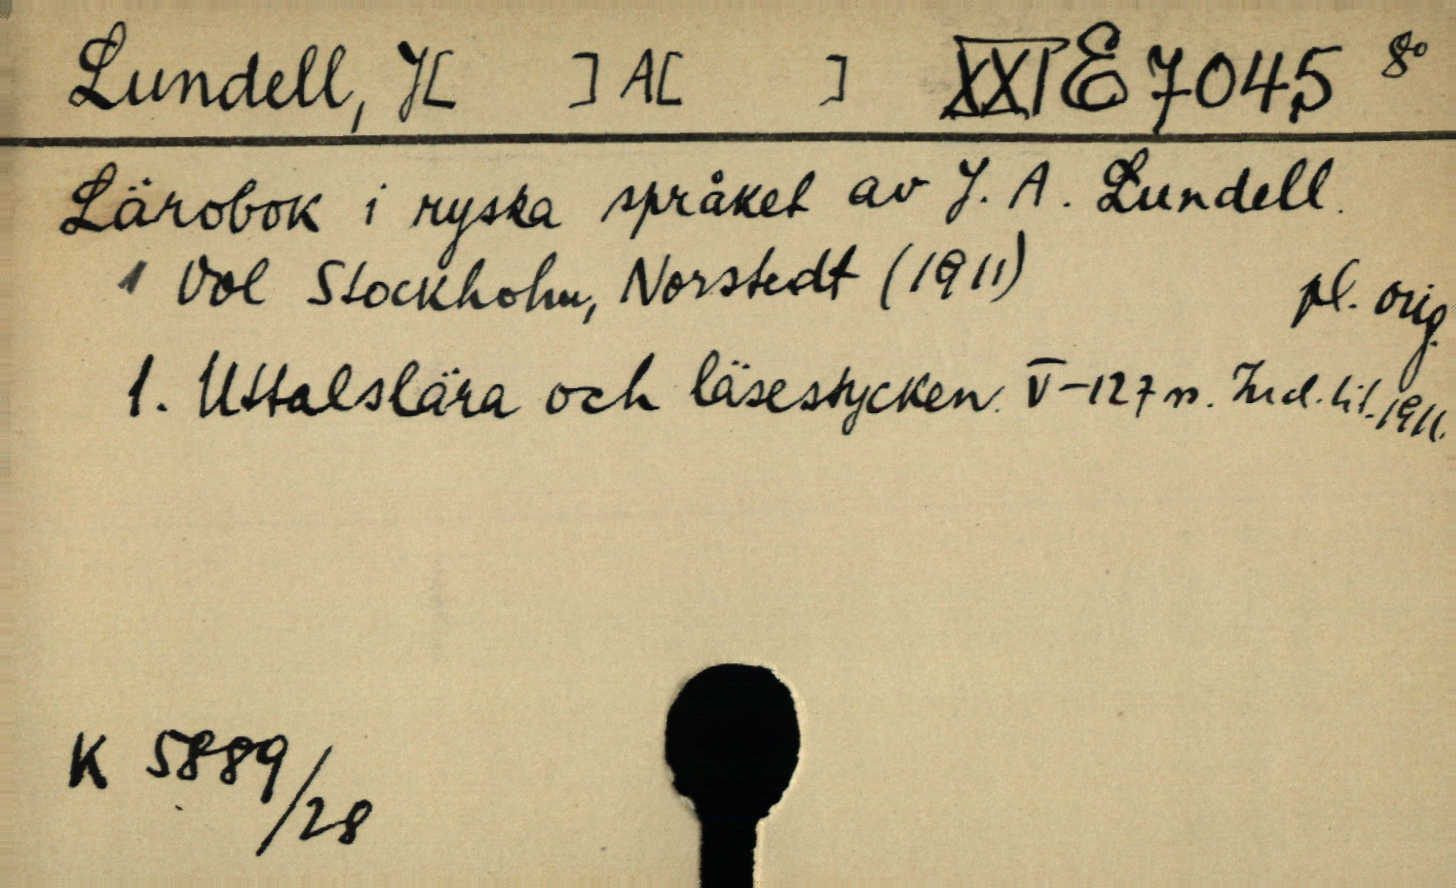 Lundell, J[ ] A[ ] XXI E 7045 8º
Lärobok i ryska språket av J. A. Lundell.
1 Vol Stockholm, Norstedt (1911)
pl. orig.
1. Uttalslära och läsestycken. V-127 n. lit. 1911.
K 5889/28